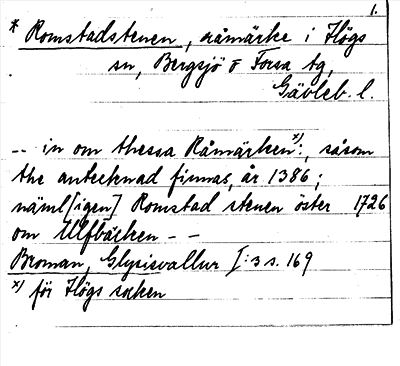 1.
* Romstadstenen, råmärke i Högs
sn, Bergsjö o Forsa tg,
Gävleb. l.
-- in om thessa Råmärken x): , såsom
the antecknad finnas, år 1386 ;
näml[igen] Romstad stenen öster 1726
om Ulfbäcken - -
Broman, Glysisvallur I: 3 s. 169
x) för Högs socken